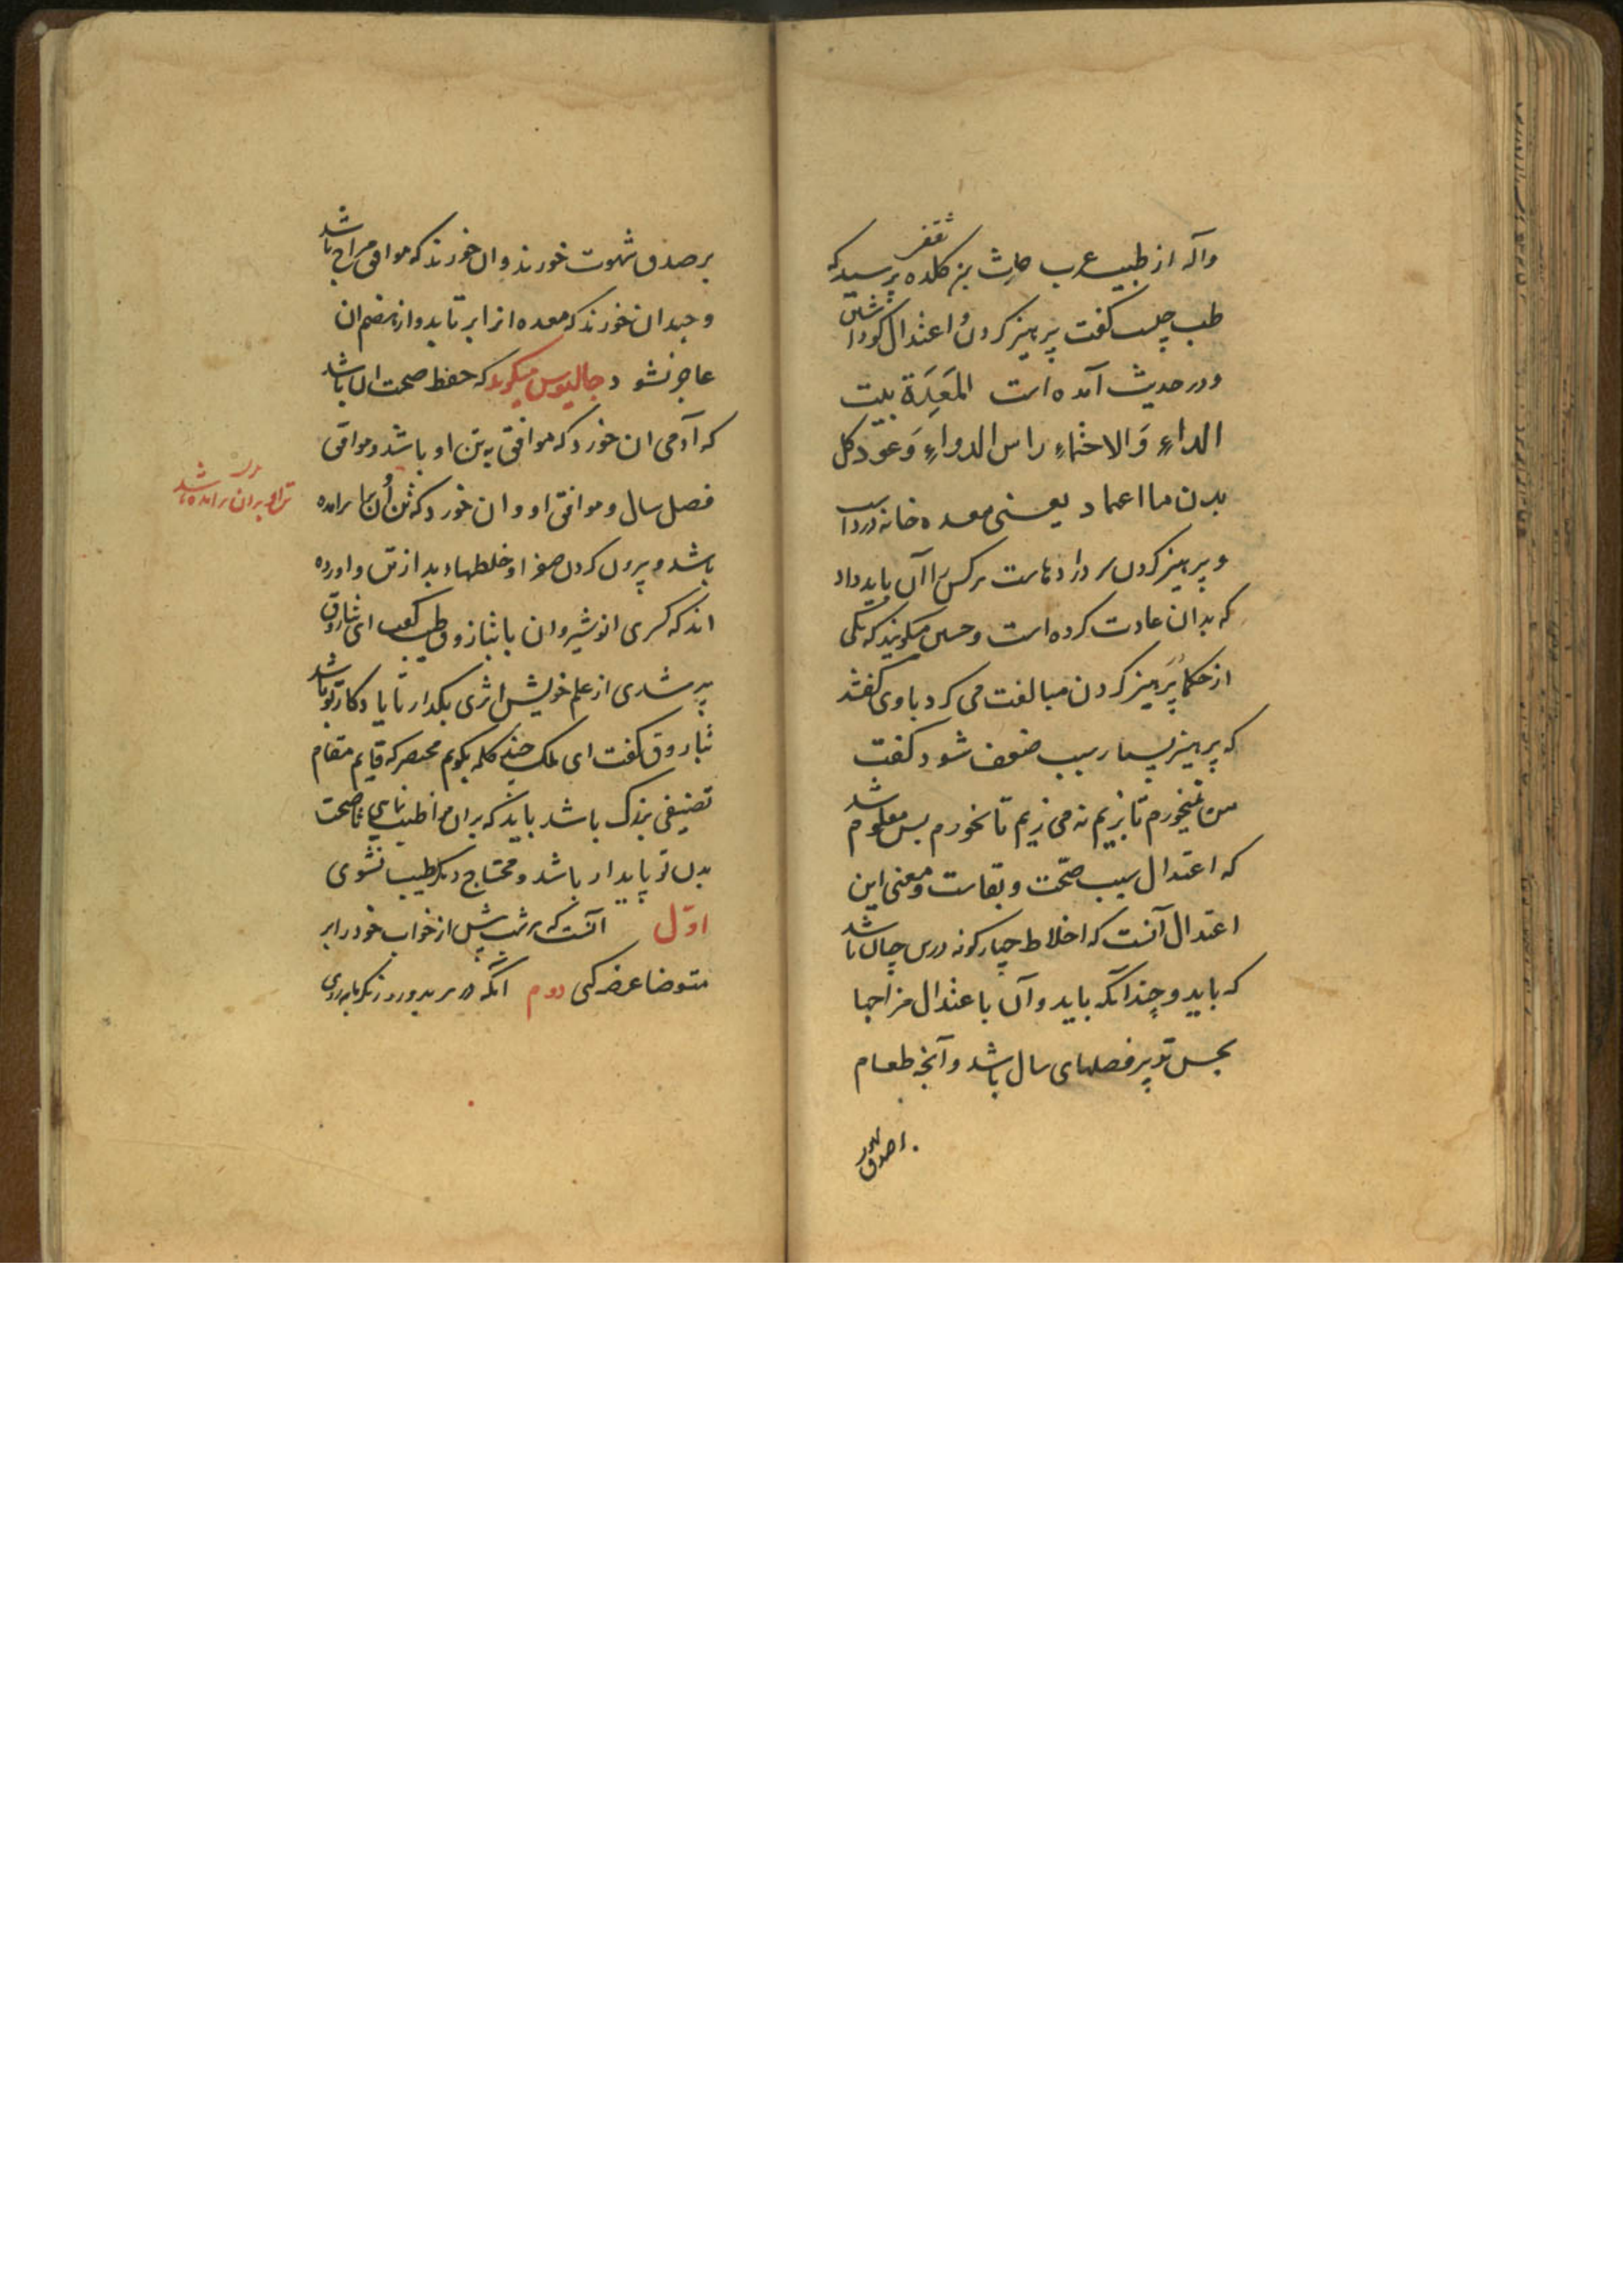 وآله از طبیب عرب حارث بن کلده ثقفی پرسید که
طب چیست کفت پرهیز کردن و اعتدال کوداشتن
ودر حدیث آمده است المَعِدَة بیت
الداءِ وَالاحتماءِ راس الدواءِ وَعَوّدکل
بدن ما اعتاد یعنی معده خانه درداست
و پرهیز کردن سر داروهاست هرکس را آن باید داد
که بدان عادت کرده است وحسن میکویند که یکی
از حکما پَرهیز کردن مبالغت می کرد باوی کفتند
که پرهیز بسیار سبب ضعف شود کفت
من میخورم تا بزیم نه می زیم تا بخورم پس معلوم شد
که اعتدال سبب صحّت و بقاست ومعنی این
اعتدال آنست که اخلاط چهارکونه درین چنان باشد
که باید و چندانکه باید وآن باعتدال مزاجها
بحسن تدبیر فصلهای سال باشد وآنچه طعام
برصدق شهوت خورند وان خورند که موافق مزاج باشد
وچندان خورند که معده انرا بر تابد واز هضم ان
عاجز نشود وجالینوس میکوید که حفظ صحت ان باشد
که آدمی ان خورد که موافق به تن او باشد وموافق
فصل سال و موافق او و ان خورد که تن اُن بران برامده
باشد و بیرون کردن صفرا وخلطهاء بد از تن و اورده
تن او بران برامده باشد
اند که کسری انوشیروان با تیاذوق طبیب کفت ای تیاذوق
پیر شدی از علم خویش اثری بکذار تا یادکار تو باشد
تیاذوق کفت ای ملک چند کلمه بکویم مختصر که قایم مقام
تصنیفی بزرک باشد باید که بران مواظبت نمایی تا صحت
بدن تو پایدار باشد و محتاج دیکر طبیب نشوی
اوّل آنست که هر شب پیش از خواب خود را بر
متوضا عرضه کنی دوم آنکه در هر بد و رد زنکر مابه روی